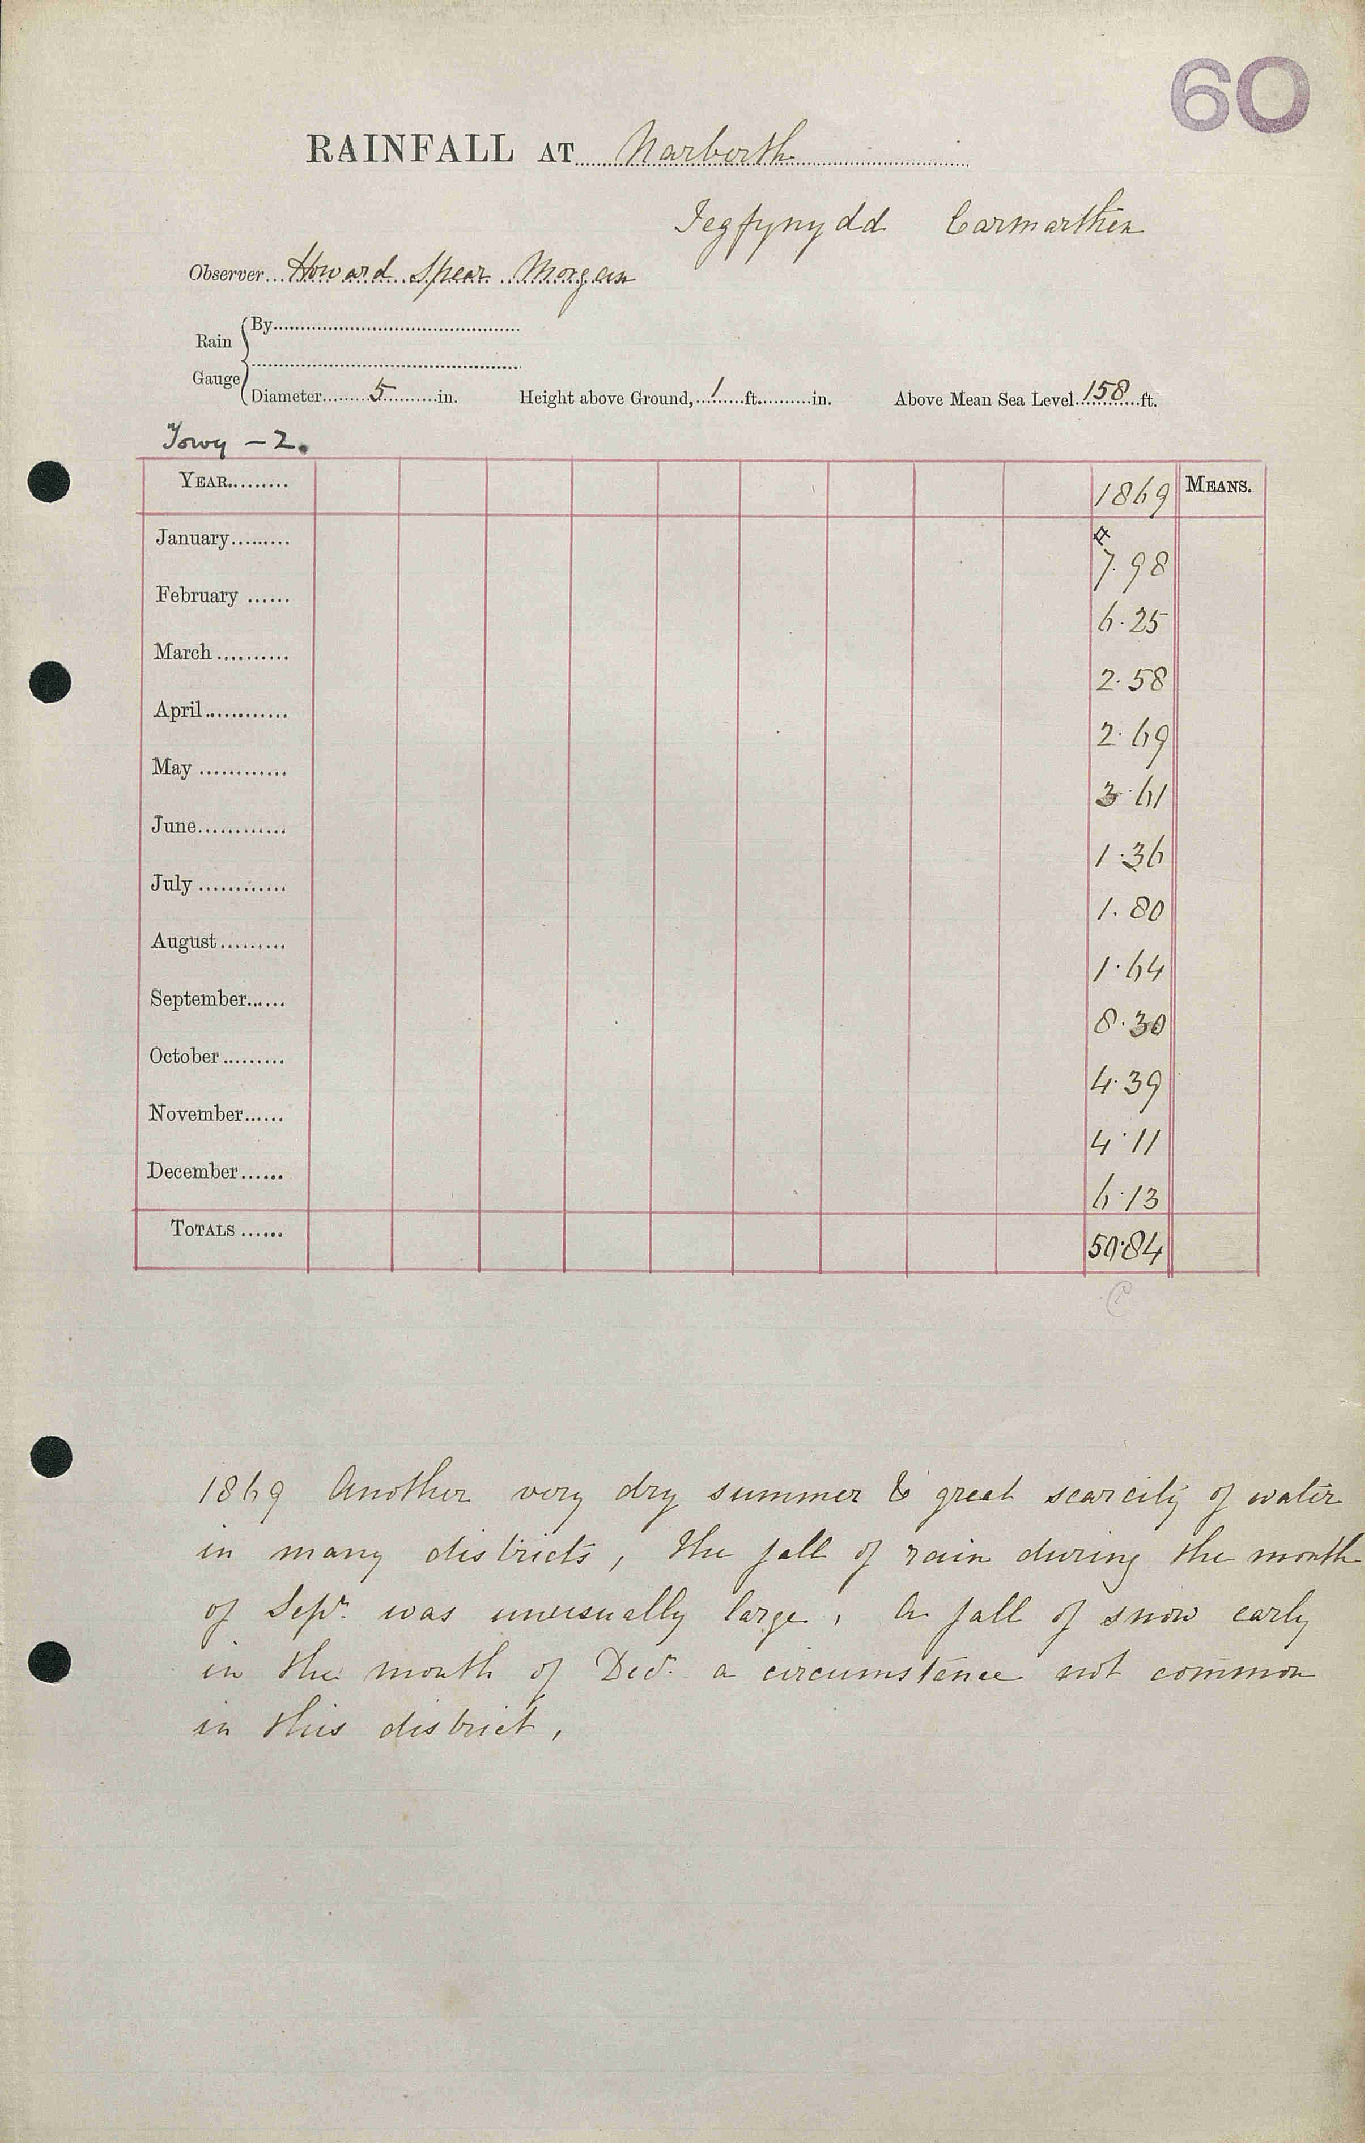 60
RAINFALL AT Narberth
Tegfynydd Carmarthen
Observer Howard Spear Morgan
Rain Gauge
By
Diameter 5 in. Height above Ground, 1 ft. in. Above Mean Sea Level 158 ft.
Towy - 2.
YEAR 1869 MEANS.
January 7.98
February 6.25
March 2.58
April 2.69
May 3.61
June 1.36
July 1.80
August 1.64
September 8.30
October 4.39
November 4.11
December 6.13
TOTALS 50.84
1869 Another very dry summer & great scarcity of water
in many districts, the fall of rain during the month
of Sepr. was unusually large, a fall of snow early
in the month of Decr. a circumstance not common
in this district,